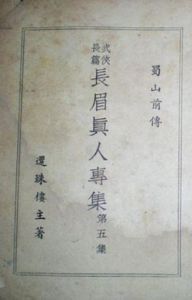 蜀山前傳
武俠長篇
長眉真人專集
第五集
還珠樓主著